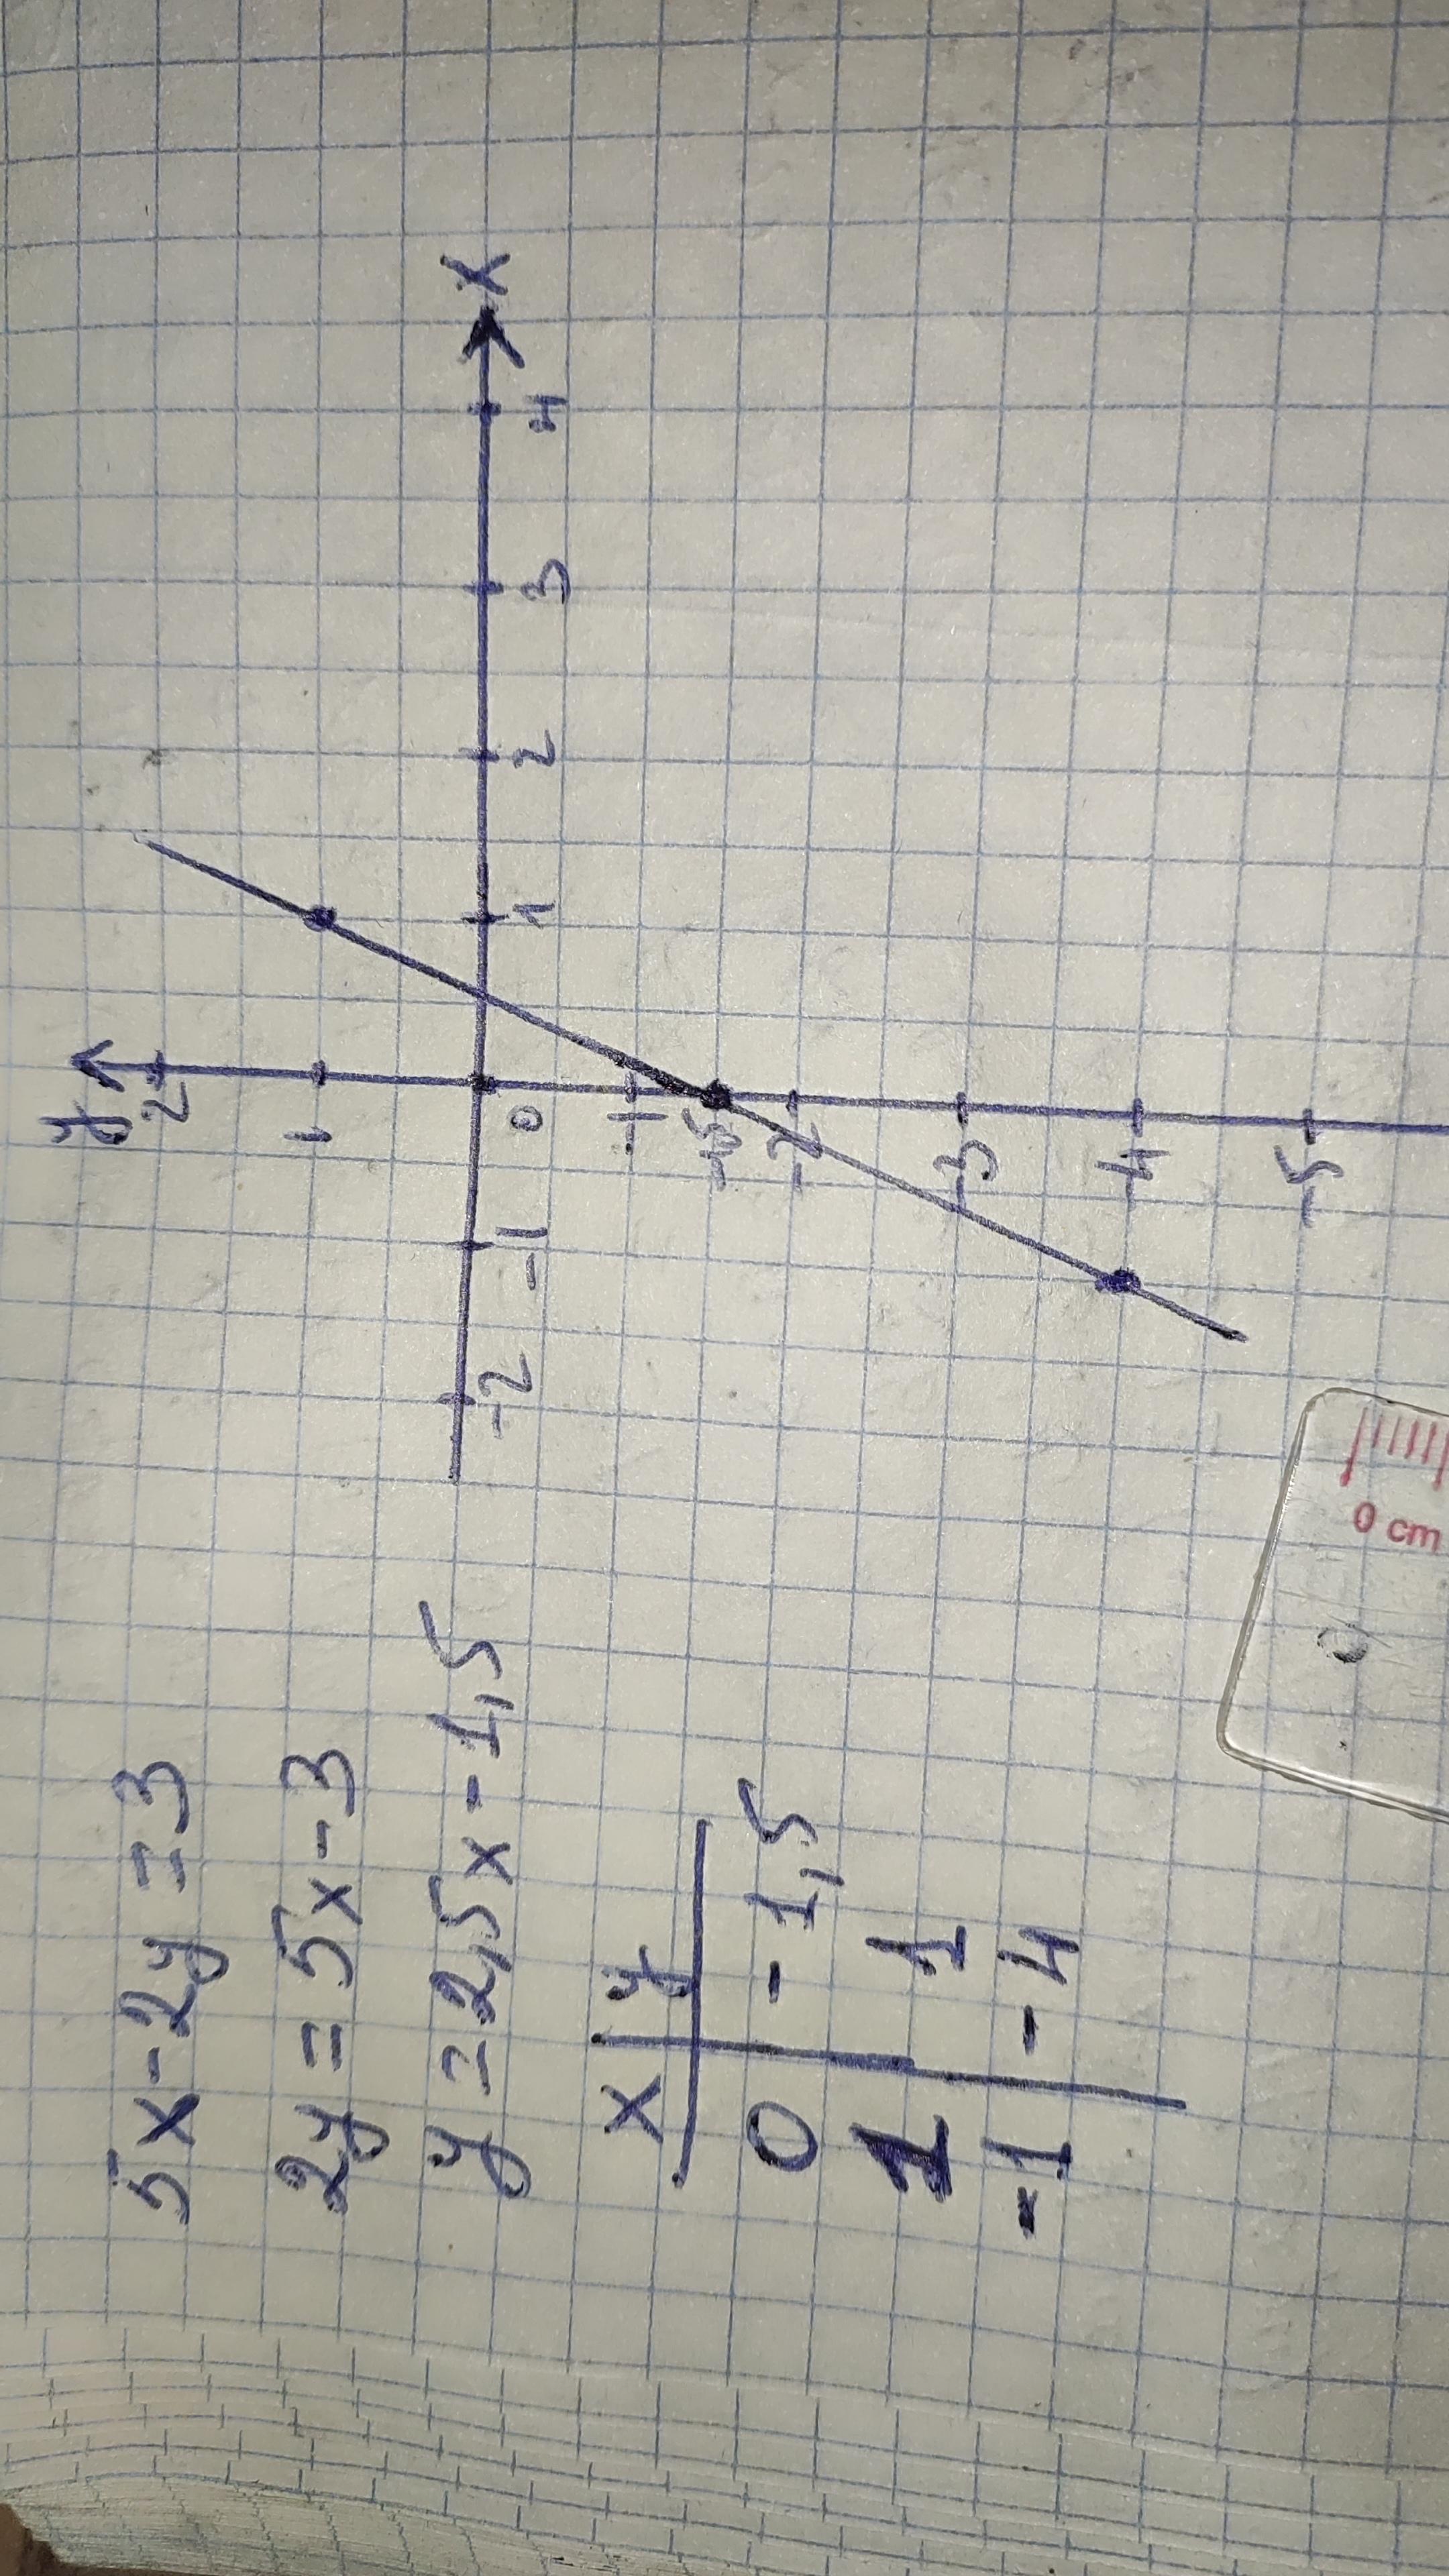 5x-2y=3
2y=5x-3
y=2,5x-1,5
x y
0 -1,5
1 1
-1 -4
y
2
1
-2 -1 0 1 2 3 4 x
-1
-1,5
-2
-3
-4
-5
0 cm